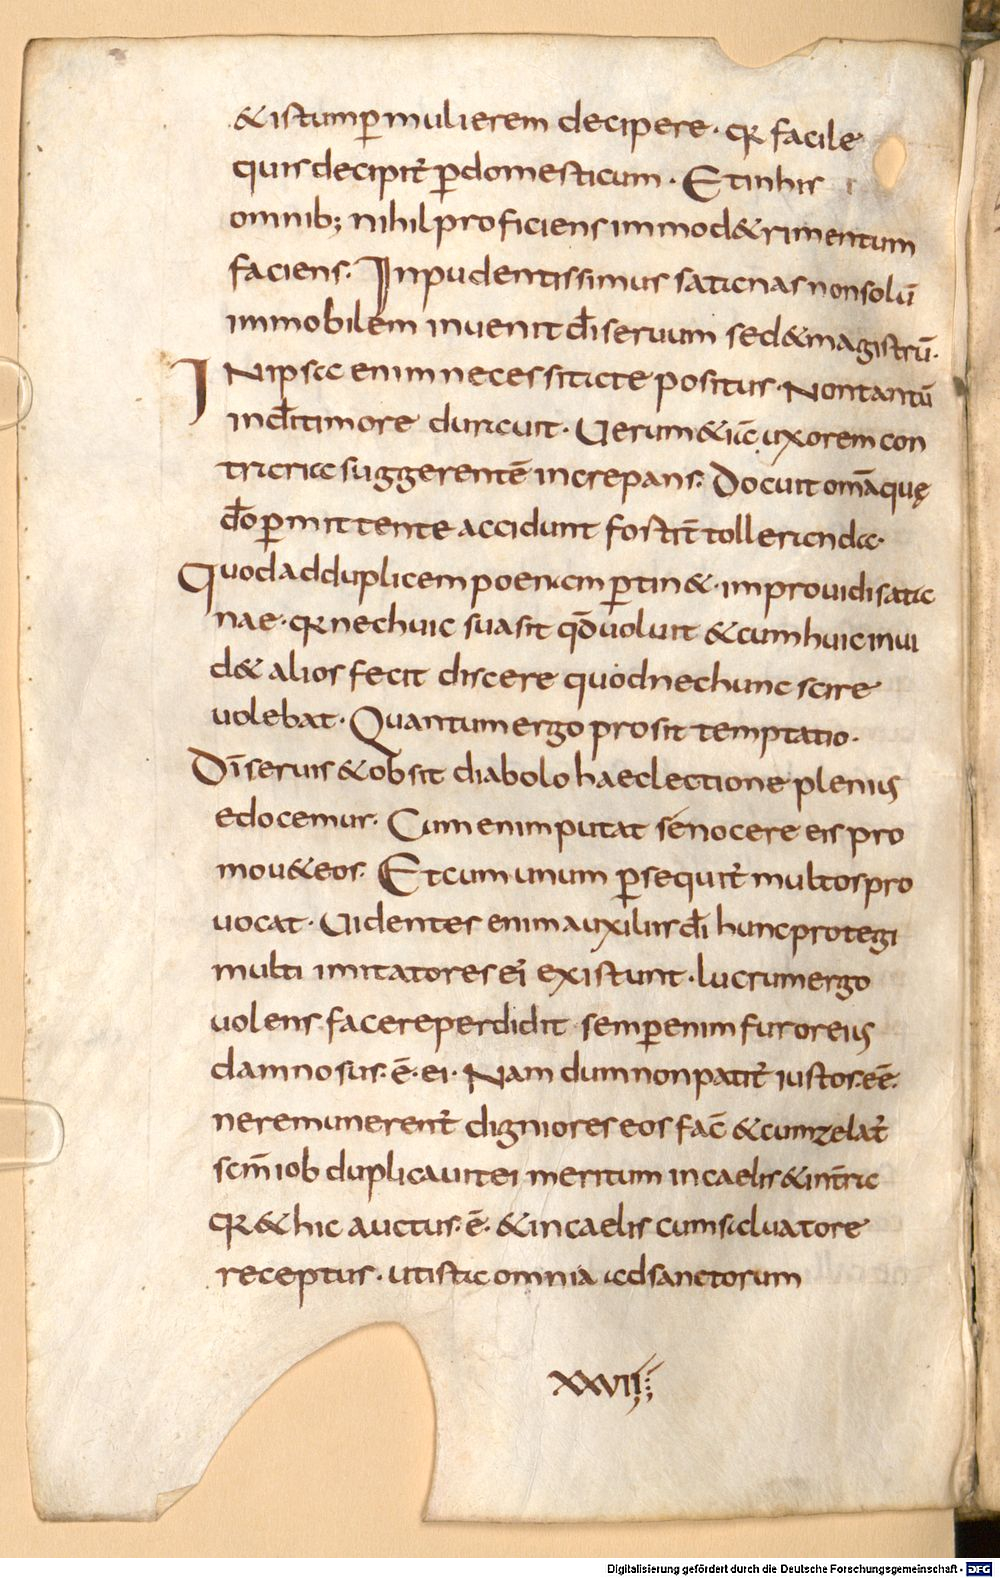 & istum ꝑ mulierem decipere · qꝛ facile
quis decipit᷑ ꝑ domesticum · Et in his
omnib; nihil proficiens immo d&rimentum
faciens · Inpudentissimus satanas non solū
immobilem inuenit dī seruum sed & magistrū ·
IN ipsa enim necessitate positus · Non tantū
in dī timore durauit · Uerum & iā uxorem con
traria suggerentē increpans · Docuit om̄a quę
dō ꝑmittente accidunt fortit᷑ tolleranda ·
Quod ad duplicem poenam ꝑtin& · improuidi sata
nae · qꝛ nec huic suasit qd̄ uoluit & cum huic inui
d& alios fecit discere quod nec hunc scire
uolebat · Quantum ergo prosit temptatio ·
Dī seruis & obsit diabolo haec lectione plenius
edocemur · Cum enim putat se nocere eis pro
mou& eos · Et cum unum ꝑsequit᷑ multos pro
uocat · Uidentes enim auxiliis dī hunc protegi
multi imitatores ei᷒ existunt · lucrum ergo
uolens facere perdidit semꝑ enim furor eius
damnosus · ē · ei · Nam dum non patit᷑ iustos eē ·
ne remunerent᷑ digniores eos fac̄ & cum zelat᷑
scm̄ iob duplicauit ei meritum in caelis & in t̄ra
qꝛ & hic auctus · ē · & in caelis cum saluatore
receptus · ut ista omnia ad sanctorum
XXVII
Digitalisierung gefördert durch die Deutsche Forschungsgemeinschaft - DFG